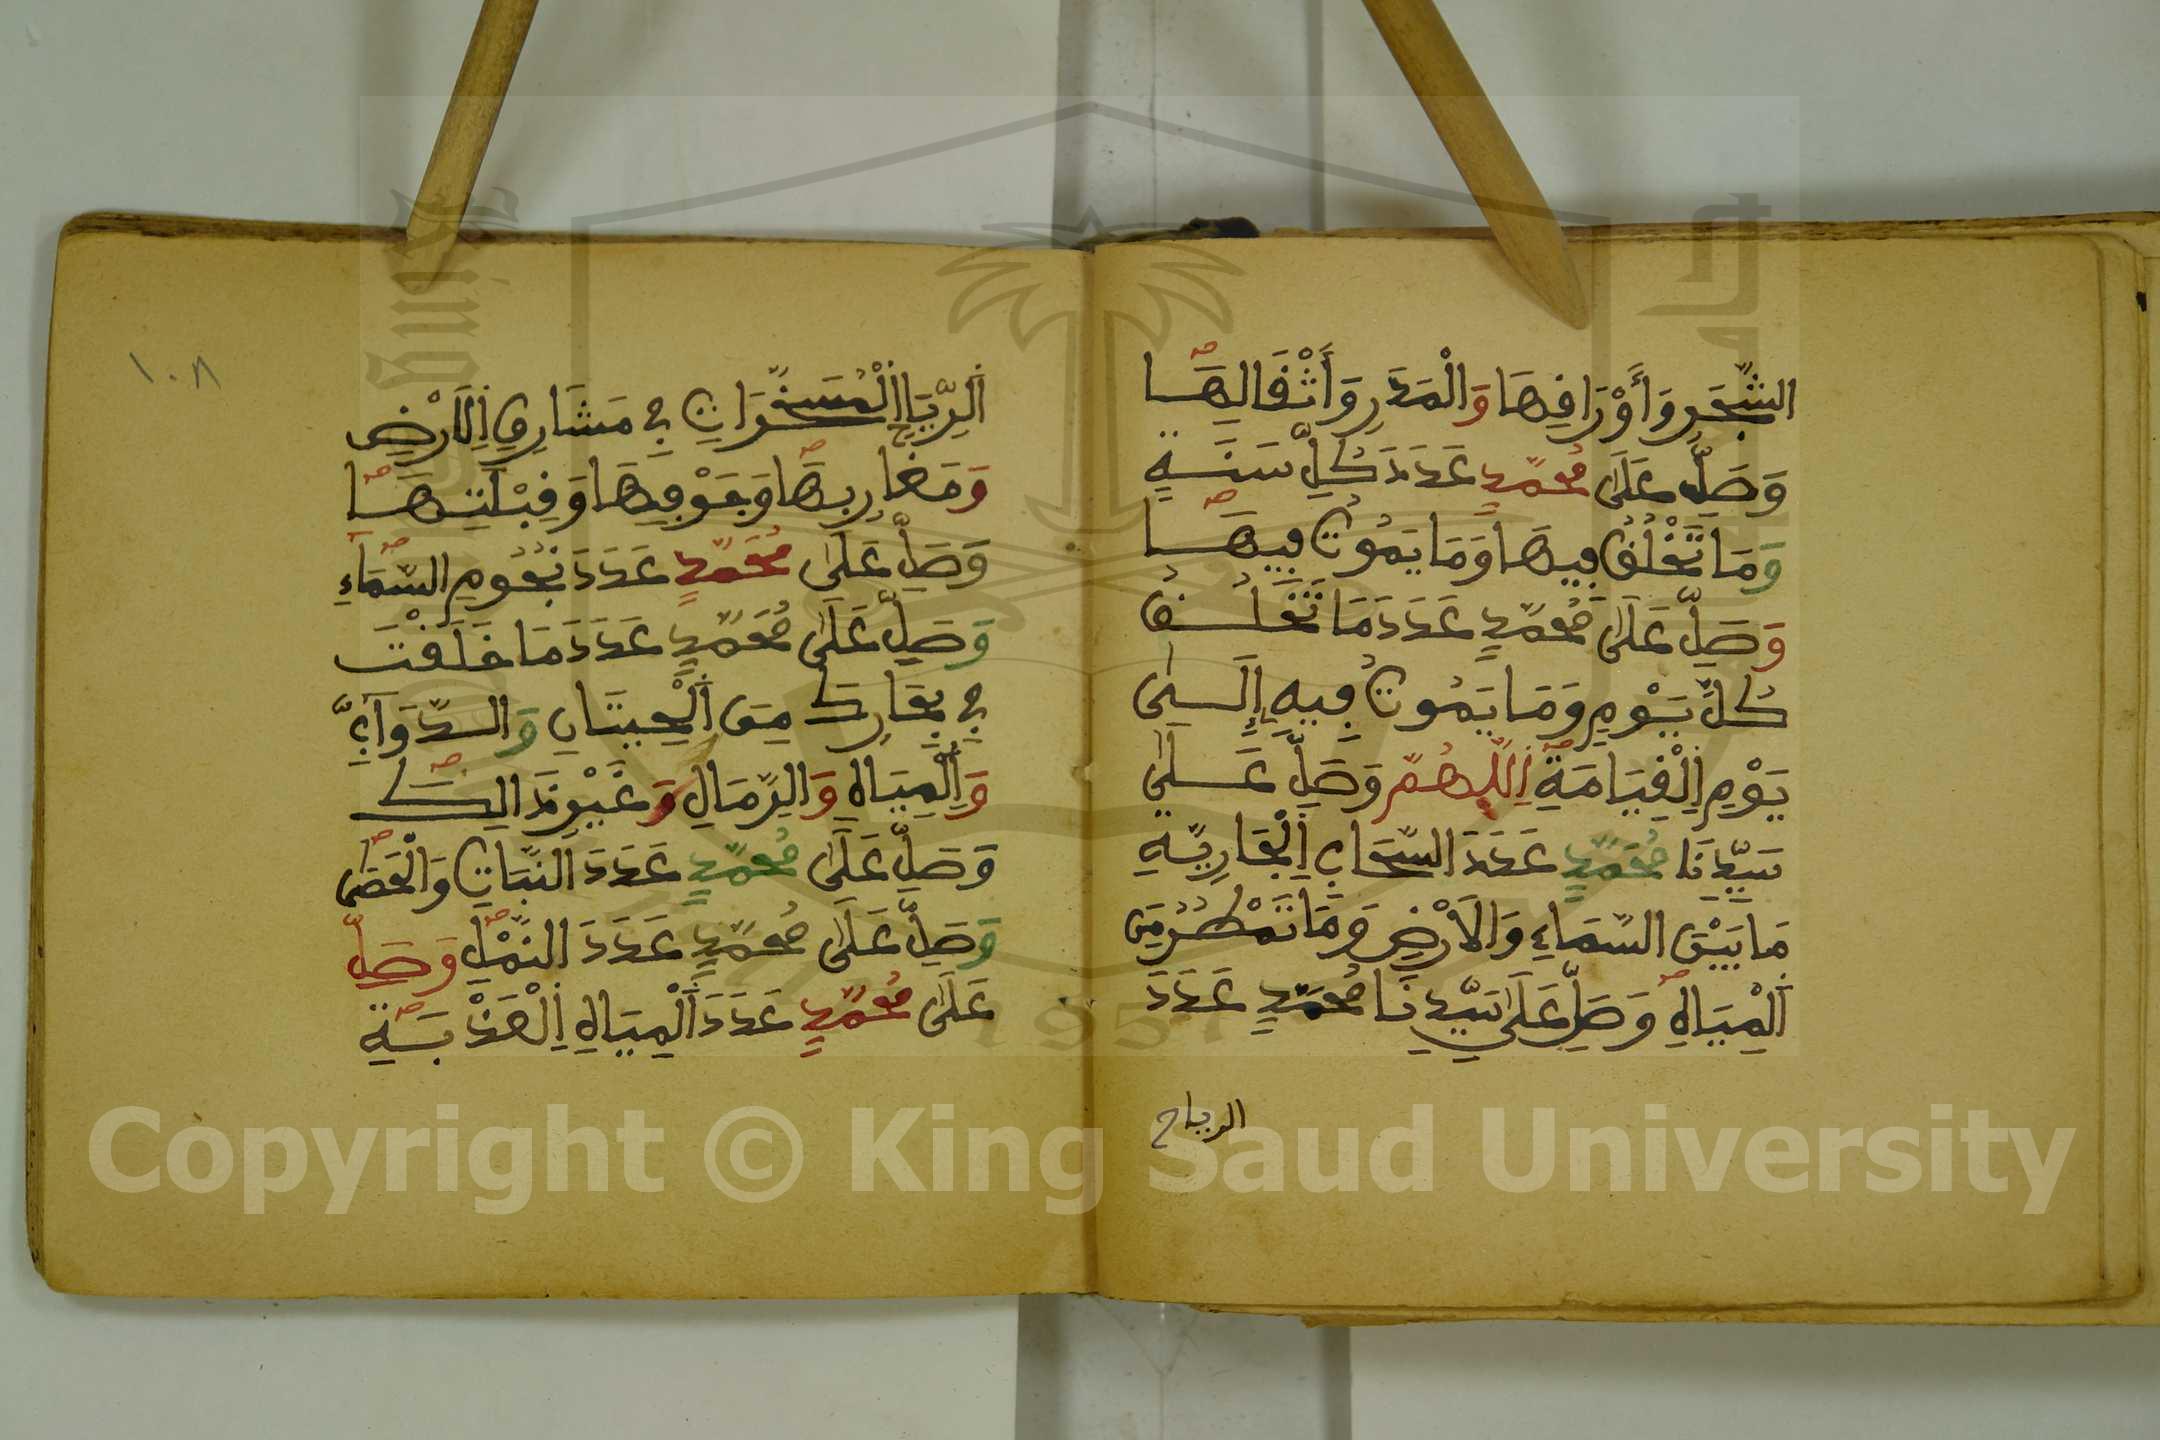 الشَّجَرِ وَأَوْرَاقِهَا وَالْمَدَرِ وَأَثْقَالِهَا
وَصَلِّ عَلَى مُحَمَّدٍ عَدَدَ كُلِّ سَنَةٍ
وَمَا تَخْلُقُ فِيهَا وَمَا يَمُوتُ فِيهَا
وَصَلِّ عَلَى مُحَمَّدٍ عَدَدَ مَا تَخْلُقُ
كُلَّ يَوْمٍ وَمَا يَمُوتُ فِيهِ إِلَى
يَوْمِ الْقِيَامَةِ اللَّهُمَّ وَصَلِّ عَلَى
سَيِّدِنَا مُحَمَّدٍ عَدَدَ السَّحَابِ الْجَارِيَةِ
مَا بَيْنَ السَّمَاءِ وَالْأَرْضِ وَمَا تَمْطُرُ مِنَ
الْمِيَاهِ وَصَلِّ عَلَى سَيِّدِنَا مُحَمَّدٍ عَدَدَ
الرياح
١٠٨
الرِّيَاحِ الْمُسَخَّرَاتِ فِي مَشَارِقِ الْأَرْضِ
وَمَغَارِبِهَا وَجَوْفِهَا وَقِبْلَتِهَا
وَصَلِّ عَلَى مُحَمَّدٍ عَدَدَ نُجُومِ السَّمَاءِ
وَصَلِّ عَلَى مُحَمَّدٍ عَدَدَ مَا خَلَقْتَ
فِي بِحَارِكَ مِنَ الْحِيتَانِ وَالدَّوَآبِّ
وَالْمِيَاهِ وَالرِّمَالِ وَغَيْرِ ذَالِكَ
وَصَلِّ عَلَى مُحَمَّدٍ عَدَدَ النَّبَاتِ وَالْحَصَى
وَصَلِّ عَلَى مُحَمَّدٍ عَدَدَ النَّمْلِ وَصَلِّ
عَلَى مُحَمَّدٍ عَدَدَ الْمِيَاهِ الْعَذْبَةِ
Copyright © King Saud University
1957